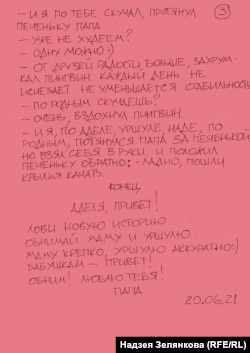 - И Я ПО ТЕБЕ СКУЧАЛ, ПРОТЯНУЛ ③
ПЕЧЕНЬКУ ПАПА.
- УЖЕ НЕ ХУДЕЕМ?
- ОДНУ МОЖНО :)
- ОТ ДРУЗЕЙ РАДОСТИ БОЛЬШЕ, ЗАХРУМ-
КАЛ ПИНГВИН. КАЖДЫЙ ДЕНЬ НЕ
ИСЧЕЗАЕТ. НЕ УМЕНЬШАЕТСЯ СТАБИЛЬНОСТЬ
- ПО РОДНЫМ СКУЧАЕШЬ?
- ОЧЕНЬ, ВЗДОХНУЛ ПИНГВИН.
- И Я, ПО АДЕЛЕ, УРШУЛЕ, НАДЕ, ПО
РОДНЫМ, ПОТЯНУЛСЯ ПАПА ЗА ПЕЧЕНЬКОЙ
НО ВЗЯЛ СЕБЯ В РУКИ И ПОЛОЖИЛ
ПЕЧЕНЬКУ ОБРАТНО: - ЛАДНО, ПОШЛИ
КРЫЛЬЯ КАЧАТЬ.
КОНЕЦ
АДЕЛЯ, ПРИВЕТ!
ЛОВИ НОВУЮ ИСТОРИЮ.
ОБНИМАЙ МАМУ И УРШУЛЮ.
МАМУ КРЕПКО, УРШУЛЮ АККУРАТНО :)
БАБУШКАМ - ПРИВЕТ!
ОБНИМ! ЛЮБЛЮ ТЕБЯ!
ПАПА
20.06.21
Надзея Зелянкова (RFE/RL)